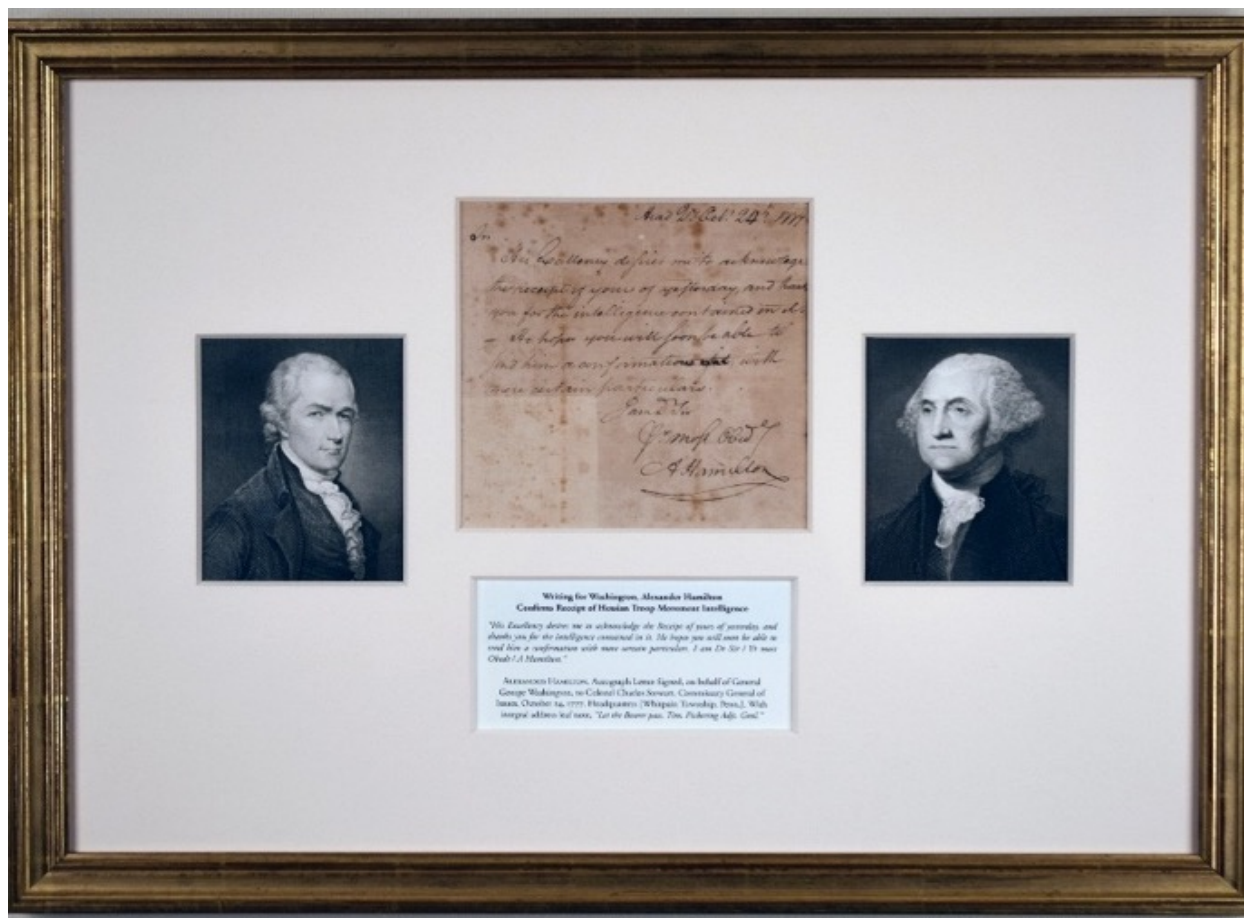 Head Qrs Octr. 24th 1777
Sir
His Excellency desires me to acknowledge
the receipt of yours of yesterday, and thank
you for the intelligence contained in it.
— He hopes you will soon be able to
send him a confirmation with
more certain particulars.
I am Dr Sir
Yr most Obedt
A Hamilton
Writing for Washington, Alexander Hamilton
Confirms Receipt of Hessian Troop Movement Intelligence
"His Excellency desires me to acknowledge the Receipt of yours of yesterday, and
thanks you for the intelligence contained in it. He hopes you will soon be able to
send him a confirmation with more certain particulars. I am Dr Sir / Yr most
Obedt / A Hamilton."
ALEXANDER HAMILTON. Autograph Letter Signed, on behalf of General
George Washington, to Colonel Charles Stewart, Commissary General of
Issues, October 24, 1777. Headquarters [Whitpain Township, Penn.]. With
integral address leaf note, "Let the Bearer pass. Tim. Pickering Adjt. Genl."